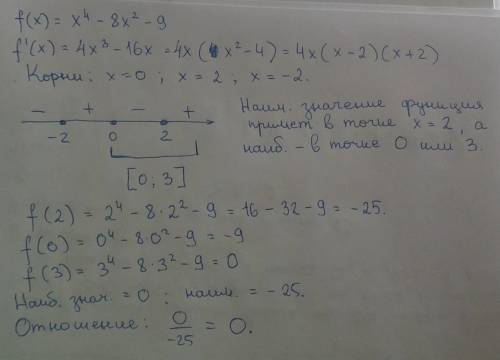 f(x) = x⁴ - 8x² - 9
f'(x) = 4x³ - 16x = 4x(x² - 4) = 4x(x - 2)(x + 2)
Корни: x = 0 ; x = 2 ; x = -2.
- + - +
-2 0 2
[0; 3]
Наим. значение функция
примет в точке x = 2, а
наиб. - в точке 0 или 3.
f(2) = 2⁴ - 8·2² - 9 = 16 - 32 - 9 = -25.
f(0) = 0⁴ - 8·0² - 9 = -9
f(3) = 3⁴ - 8·3² - 9 = 0
Наиб. знач. = 0 ; наим. = -25.
Отношение: 0/-25 = 0.